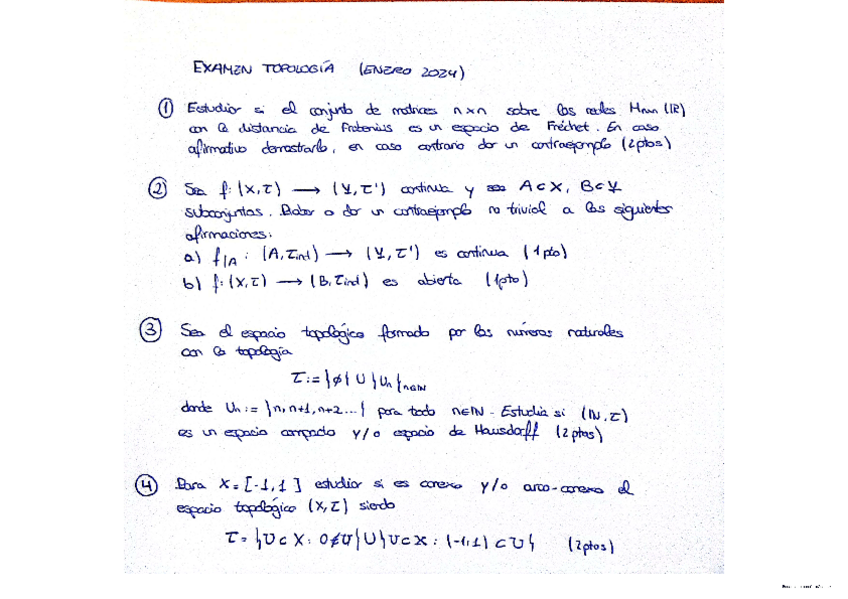 EXAMEN TOPOLOGÍA (ENERO 2024)
① Estudiar si el conjunto de matrices n×n sobre los reales Mnxn (IR)
con la distancia de Frobenius es un espacio de Fréchet. En caso
afirmativo demostrarlo, en caso contrario dar un contraejemplo (2 ptos)
② Sea f: (X,τ) → (Y,τ') continua y A⊂X, B⊂Y
subconjuntos. Probar o dar un contraejemplo no trivial a las siguientes
afirmaciones:
a) f|A : (A,τind) → (Y,τ') es continua (1 pto)
b) f: (X,τ) → (B,τind) es abierta (1pto)
③ Sea el espacio topológico formado por los números naturales
con la topología
τ:= {∅} ∪ {Un}n∈IN
donde Un := {n, n+1, n+2...} para todo n∈IN. Estudia si (IN,τ)
es un espacio compacto y/o espacio de Hausdorff (2 ptos)
④ Para X = [-1,1] estudiar si es conexo y/o arco-conexo el
espacio topológico (X,τ) siendo
τ = {U⊂X : 0∉U} ∪ {U⊂X : (-1,1) ⊂ U} (2ptos)